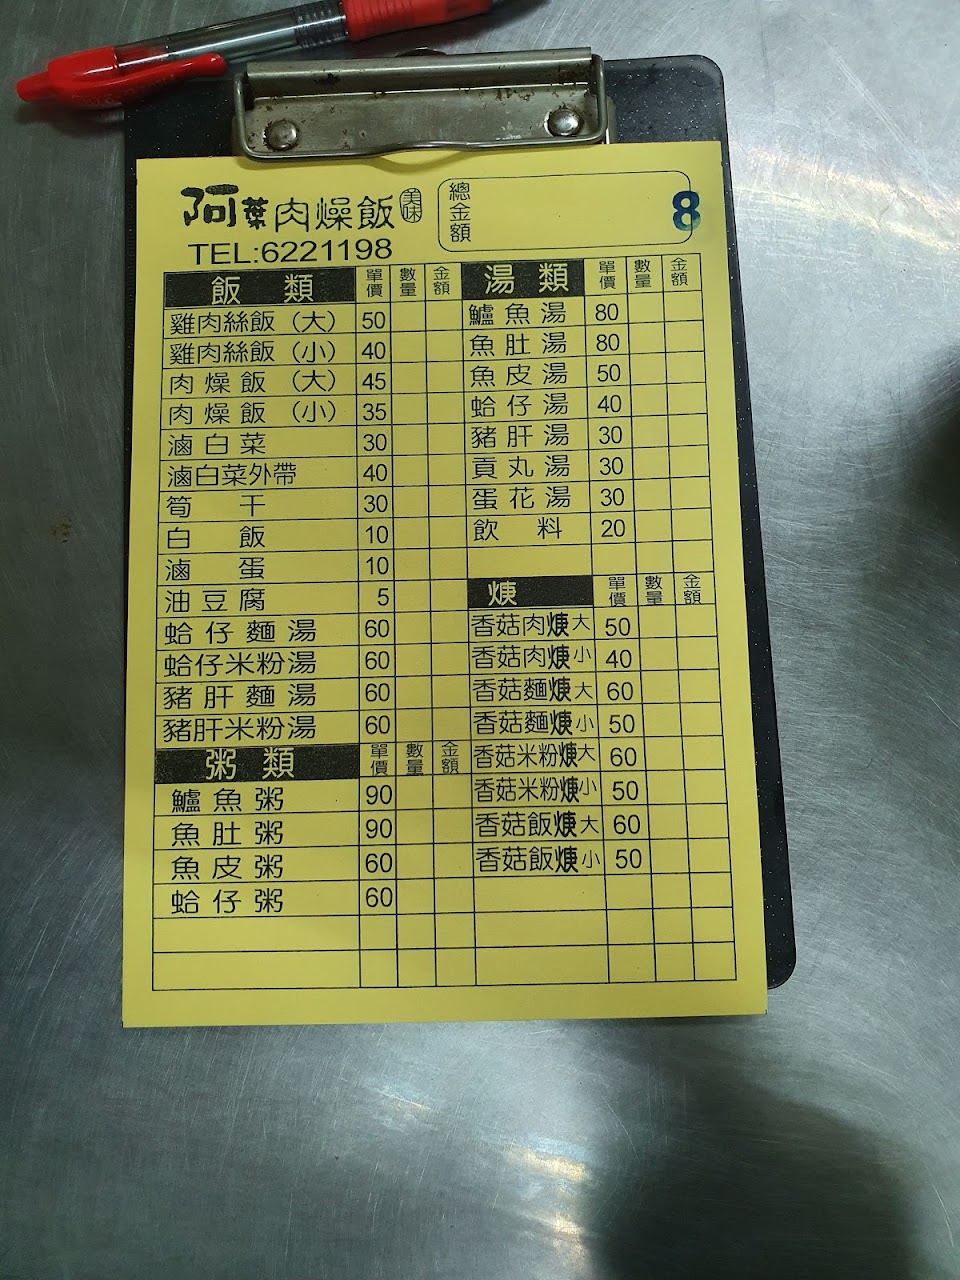 阿葉肉燥飯 美味
TEL:6221198
總金額 8
飯類 單價 數量 金額
雞肉絲飯(大) 50
雞肉絲飯(小) 40
肉燥飯(大) 45
肉燥飯(小) 35
滷白菜 30
滷白菜外帶 40
筍干 30
白飯 10
滷蛋 10
油豆腐 5
蛤仔麵湯 60
蛤仔米粉湯 60
豬肝麵湯 60
豬肝米粉湯 60
粥類 單價 數量 金額
鱸魚粥 90
魚肚粥 90
魚皮粥 60
蛤仔粥 60
湯類 單價 數量 金額
鱸魚湯 80
魚肚湯 80
魚皮湯 50
蛤仔湯 40
豬肝湯 30
貢丸湯 30
蛋花湯 30
飲料 20
焿 單價 數量 金額
香菇肉焿大 50
香菇肉焿小 40
香菇麵焿大 60
香菇麵焿小 50
香菇米粉焿大 60
香菇米粉焿小 50
香菇飯焿大 60
香菇飯焿小 50